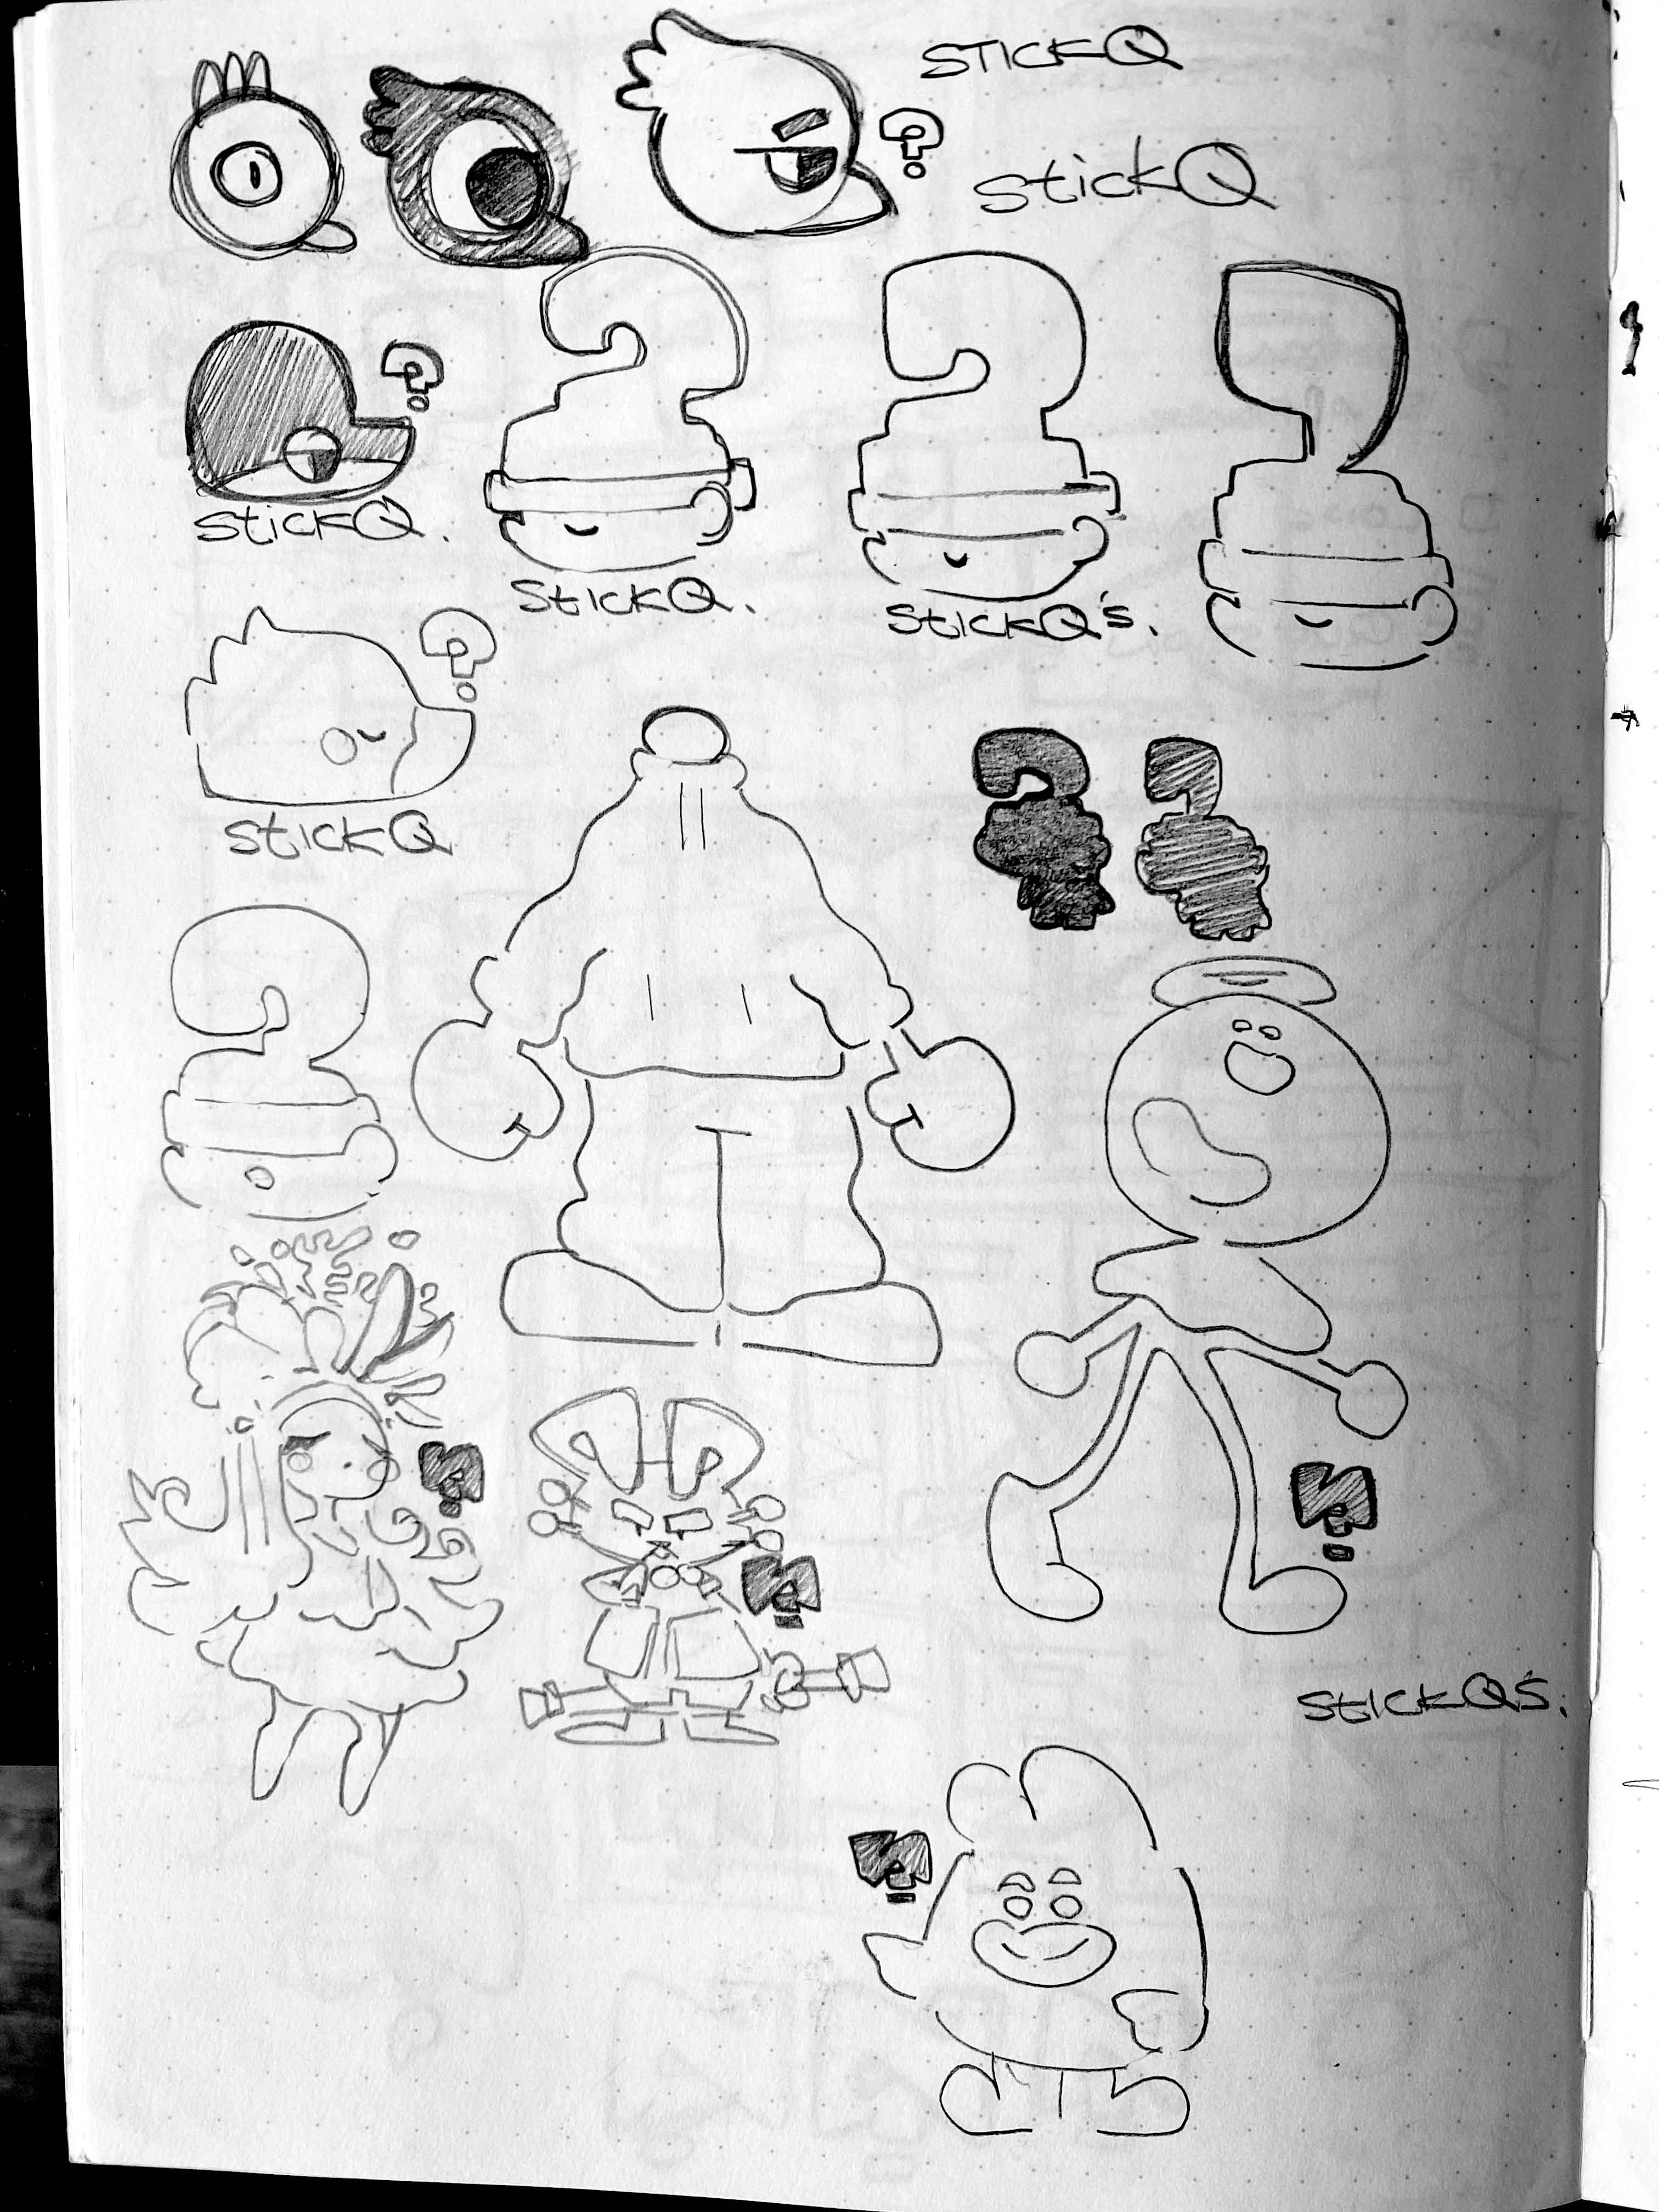 STICKQ
?
stickQ
?
stickQ.
stickQ.
stickQ's.
?
stickQ
stickQ's.